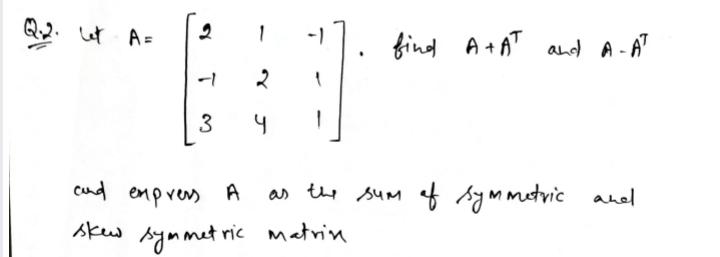 Q.2. Let A = [ 2 1 -1 ] . find A + Aᵀ and A - Aᵀ
-1 2 1
3 4 1
and express A as the sum of symmetric and
skew symmetric matrix